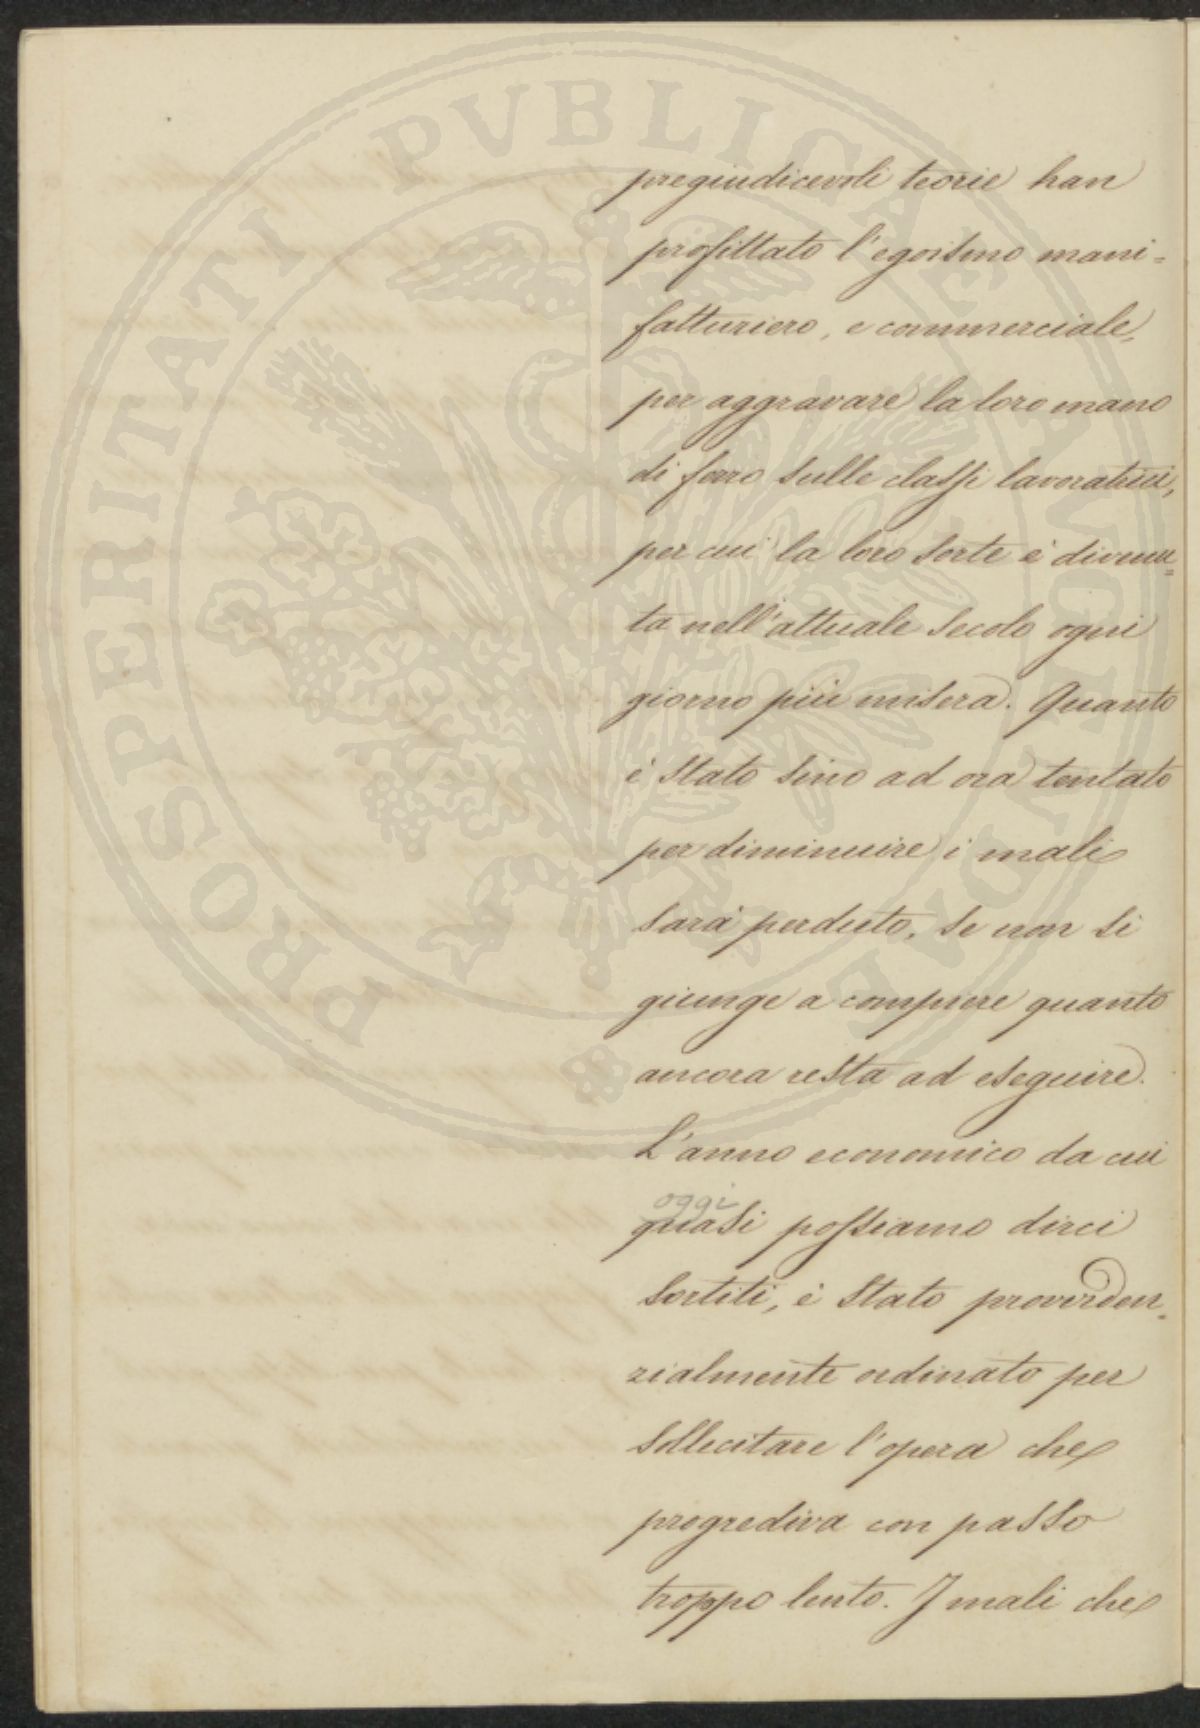 PROSPERITATI PVBLICAE AVGENDAE
pregiudicevoli teorie han
profittato l'egoismo mani=
fatturiero, e commerciale,
per aggravare la loro mano
di ferro sulle classi lavoratrici,
per cui la loro sorte è divenu=
ta nell'attuale secolo ogni
giorno più misera. Quanto
è stato sino ad ora tentato
per diminuire i mali
sarà perduto, se non si
giunge a compiere quanto
ancora resta ad eseguire.
L'anno economico da cui
oggi
quasi possiamo dirci
sortiti, è stato provviden=
zialmente ordinato per
sollecitare l'opera che
progrediva con passo
troppo lento. I mali che